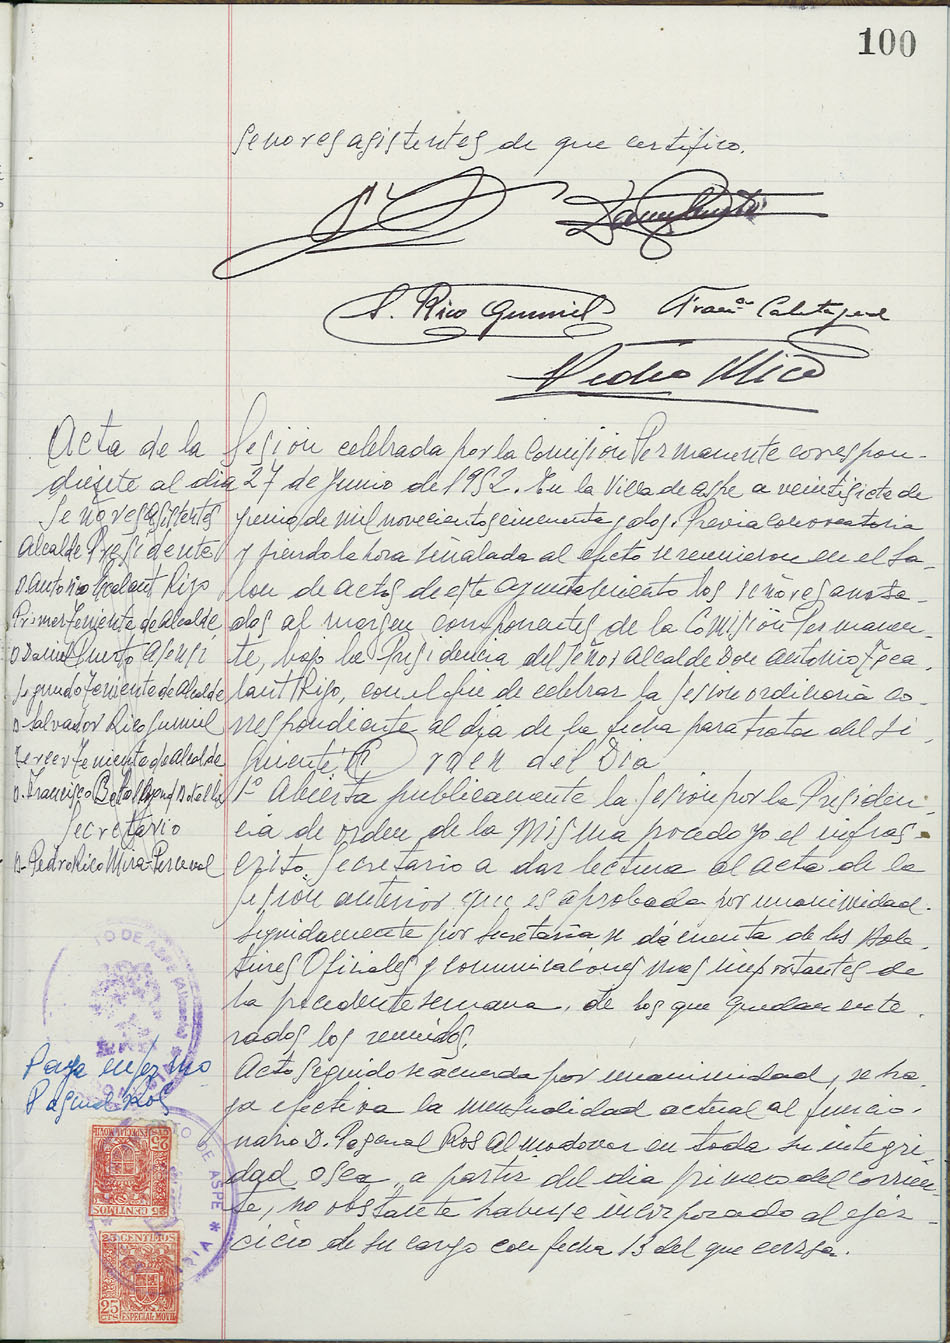 100
Señores asistentes de que certifico.
S. Rico Gumiel Franco Calatayud
Pedro Rico
Acta de la Sesión celebrada por la Comisión Permanente correspon-
diente al dia 27 de Junio de 1952. En la Villa de Aspe a veintisiete de
Señores Asistentes
Alcalde Presidente
D. Antonio Rizo
Primer Teniente de Alcalde,
D. Daniel Puerto Asensi
Segundo Teniente de Alcalde
D. Salvador Rico Gumiel
Tercer Teniente de Alcalde
D. Francisco Botella
Secretario
D. Pedro Rico Mira-Perceval
Junio de mil novecientos cincuenta y dos. Previa convocatoria
y siendo la hora señalada al efecto se reunieron en el Sa-
lon de actos de este Ayuntamiento los señores anota-
dos al margen componentes de la Comisión Permanen-
te, bajo la Presidencia del Señor Alcalde Don Antonio
Rizo, con el fin de celebrar la Sesion ordinaria co-
rrespondiente al dia de la fecha para tratar del Si-
guiente Orden del Dia
1º Abierta publicamente la Sesion por la Presiden-
cia de orden de la Misma procedo yo el infras-
crito Secretario a dar lectura al acta de la
Sesion anterior que es aprobada por unanimidad.
Seguidamente por Secretaria se da cuenta de los Bole-
tines Oficiales y comunicaciones mas importantes de
la precedente semana, de los que quedan ente-
rados los reunidos.
Acto seguido se acuerda por unanimidad, se ha-
ga efectiva la mensualidad actual al funcio-
nario D. Pascual Ros Almodovar en toda su integri-
dad, o sea, a partir del dia primero del corrien-
te, no obstante haberse incorporado al ejer-
cicio de su cargo con fecha 13 del que cursa.
Paga enfermo
Pascual Ros
TO DE ASPE (Alicante)
TO DE ASPE
25 CENTIMOS
ESPECIAL MOVIL
25 CTS
25 CENTIMOS
25 CTS ESPECIAL MOVIL